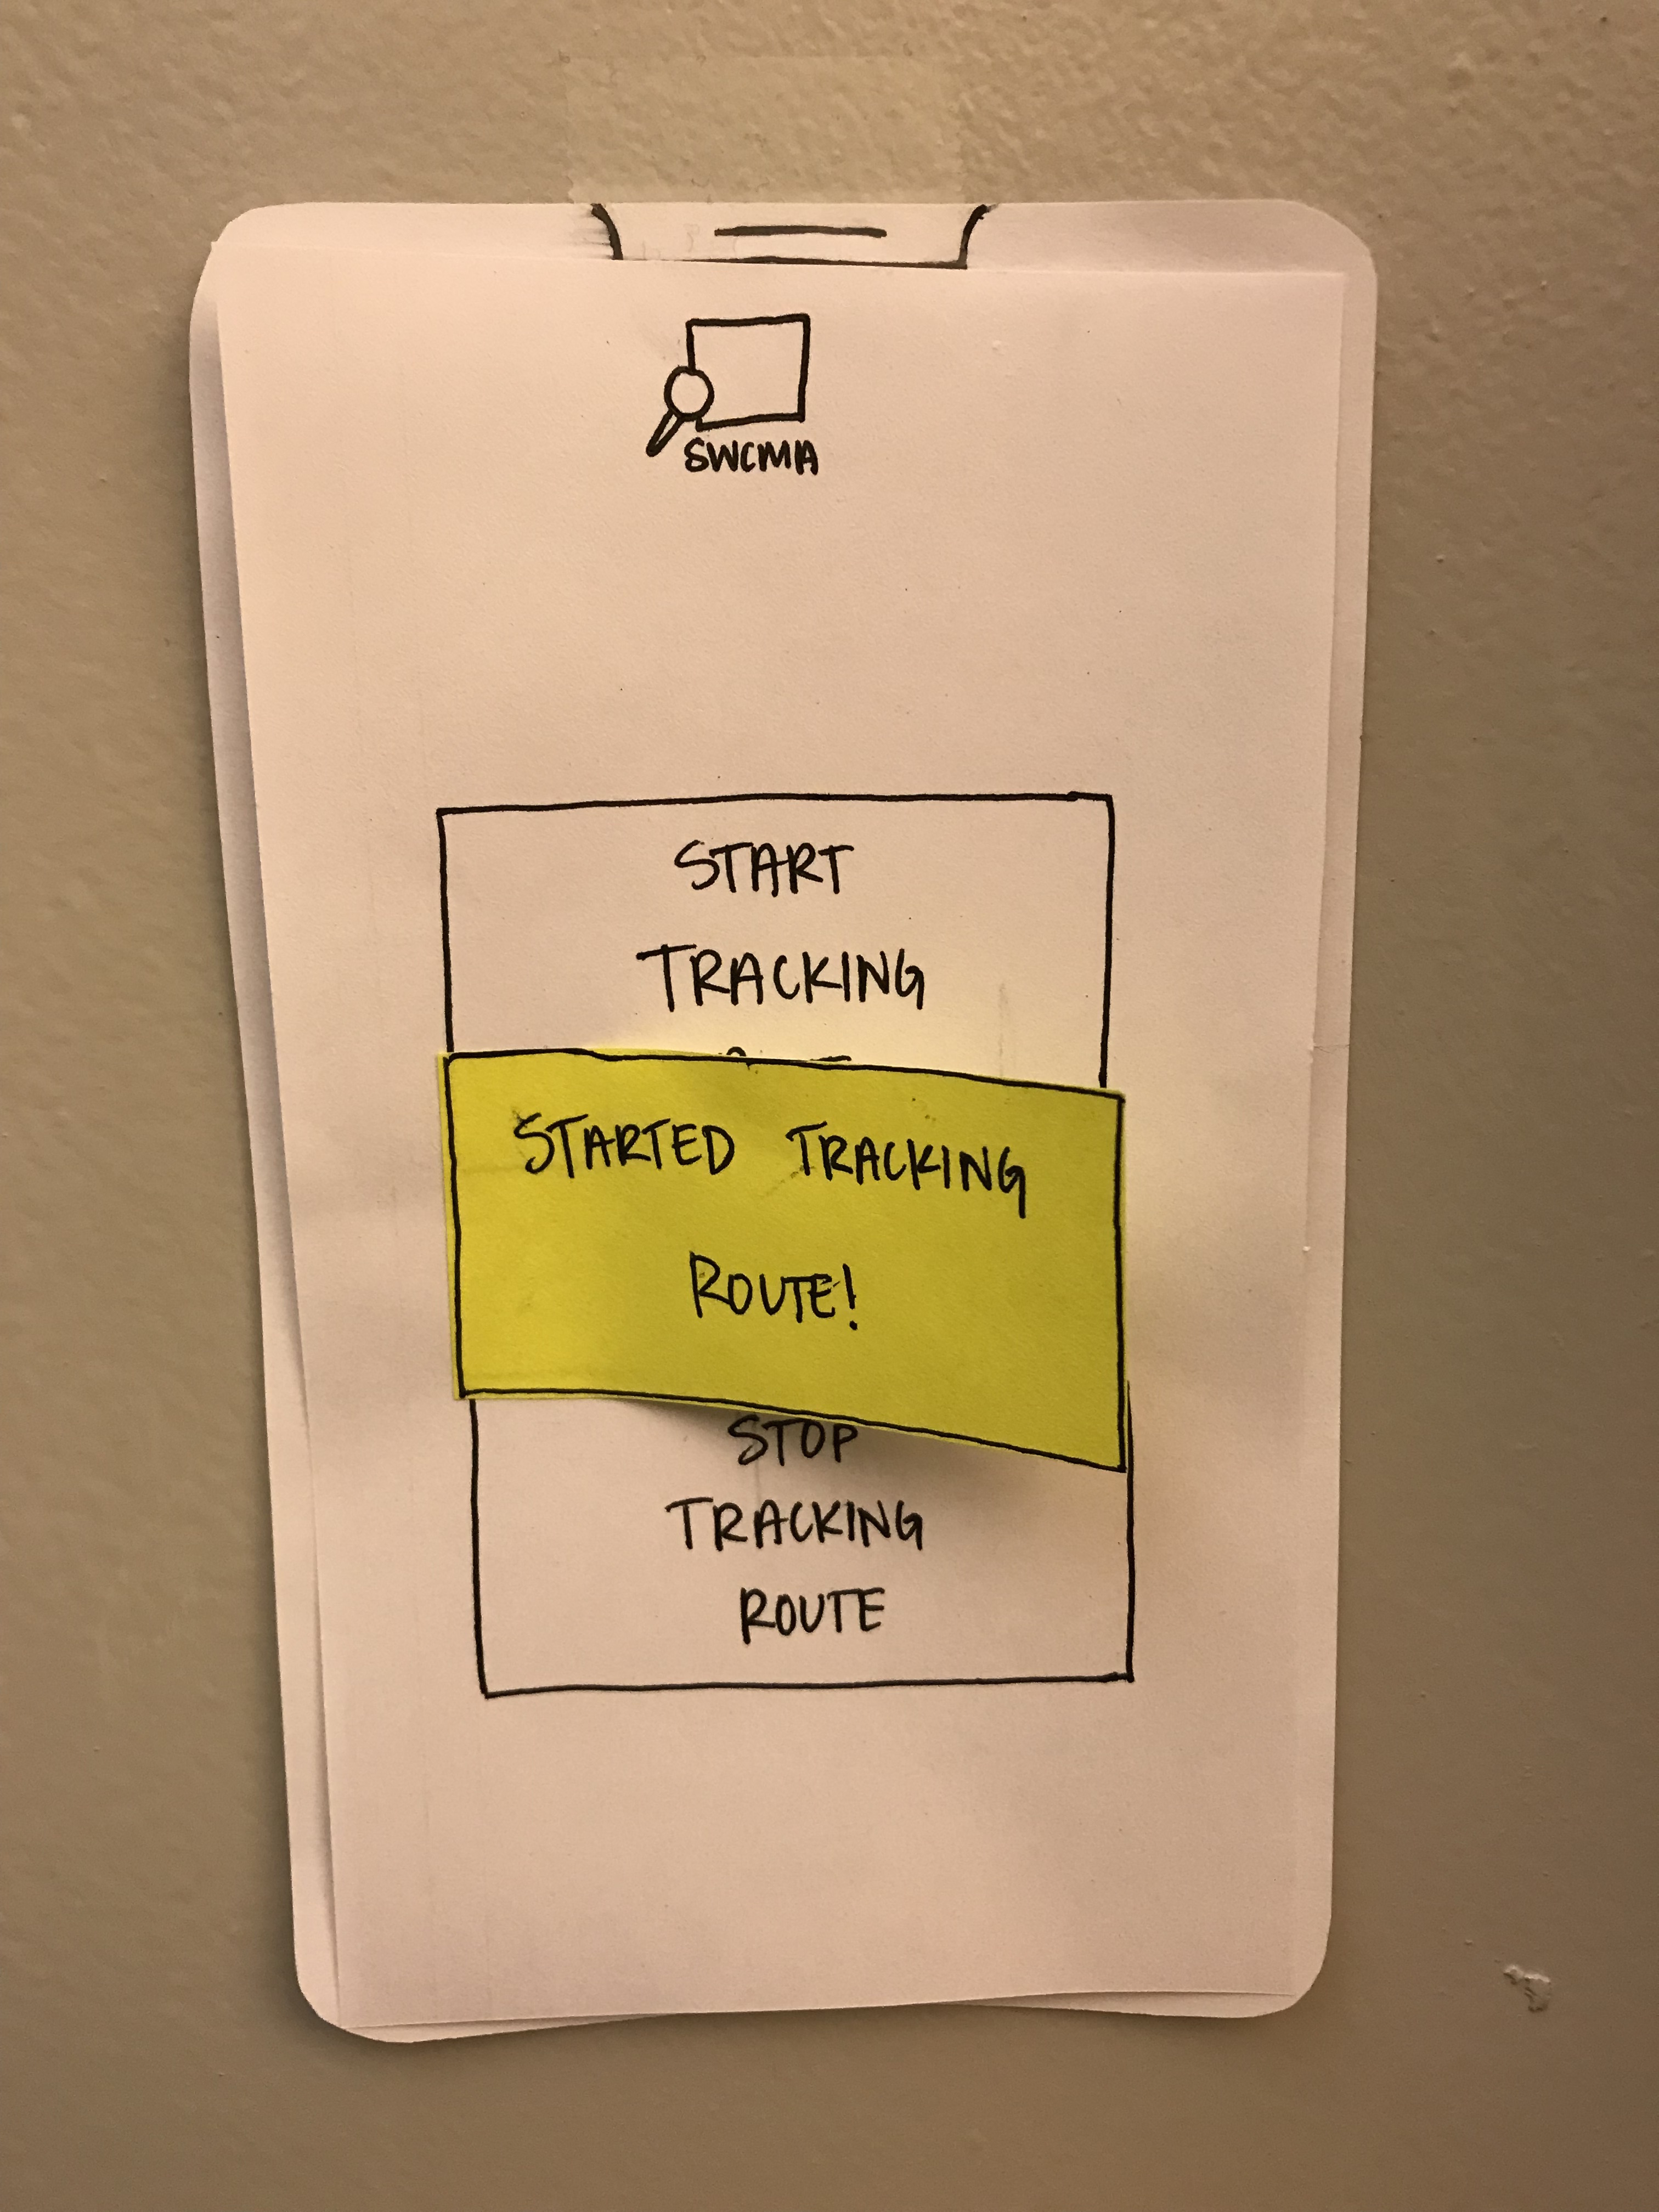 SWCMA
START
TRACKING
STARTED TRACKING
ROUTE!
STOP
TRACKING
ROUTE